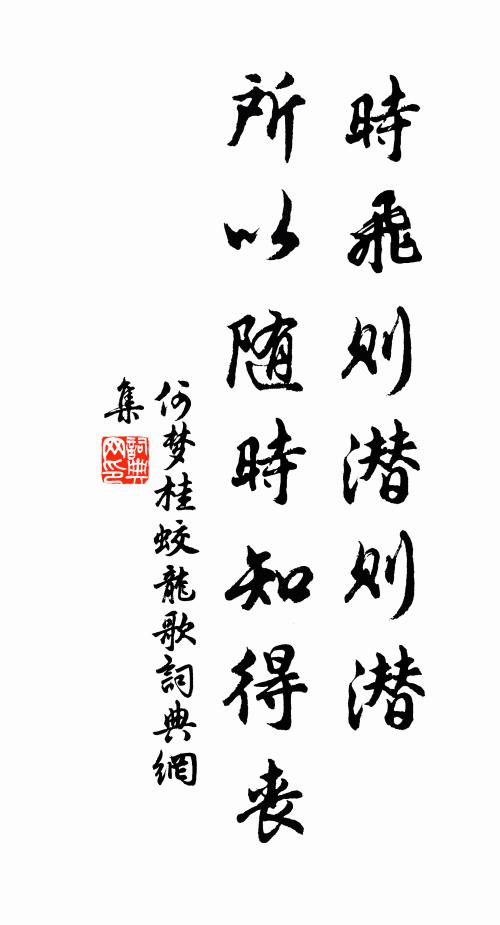 時飛則潛則潛
所以随時知得喪
何梦桂蛟龍歌詞典網
集
詞典
网印